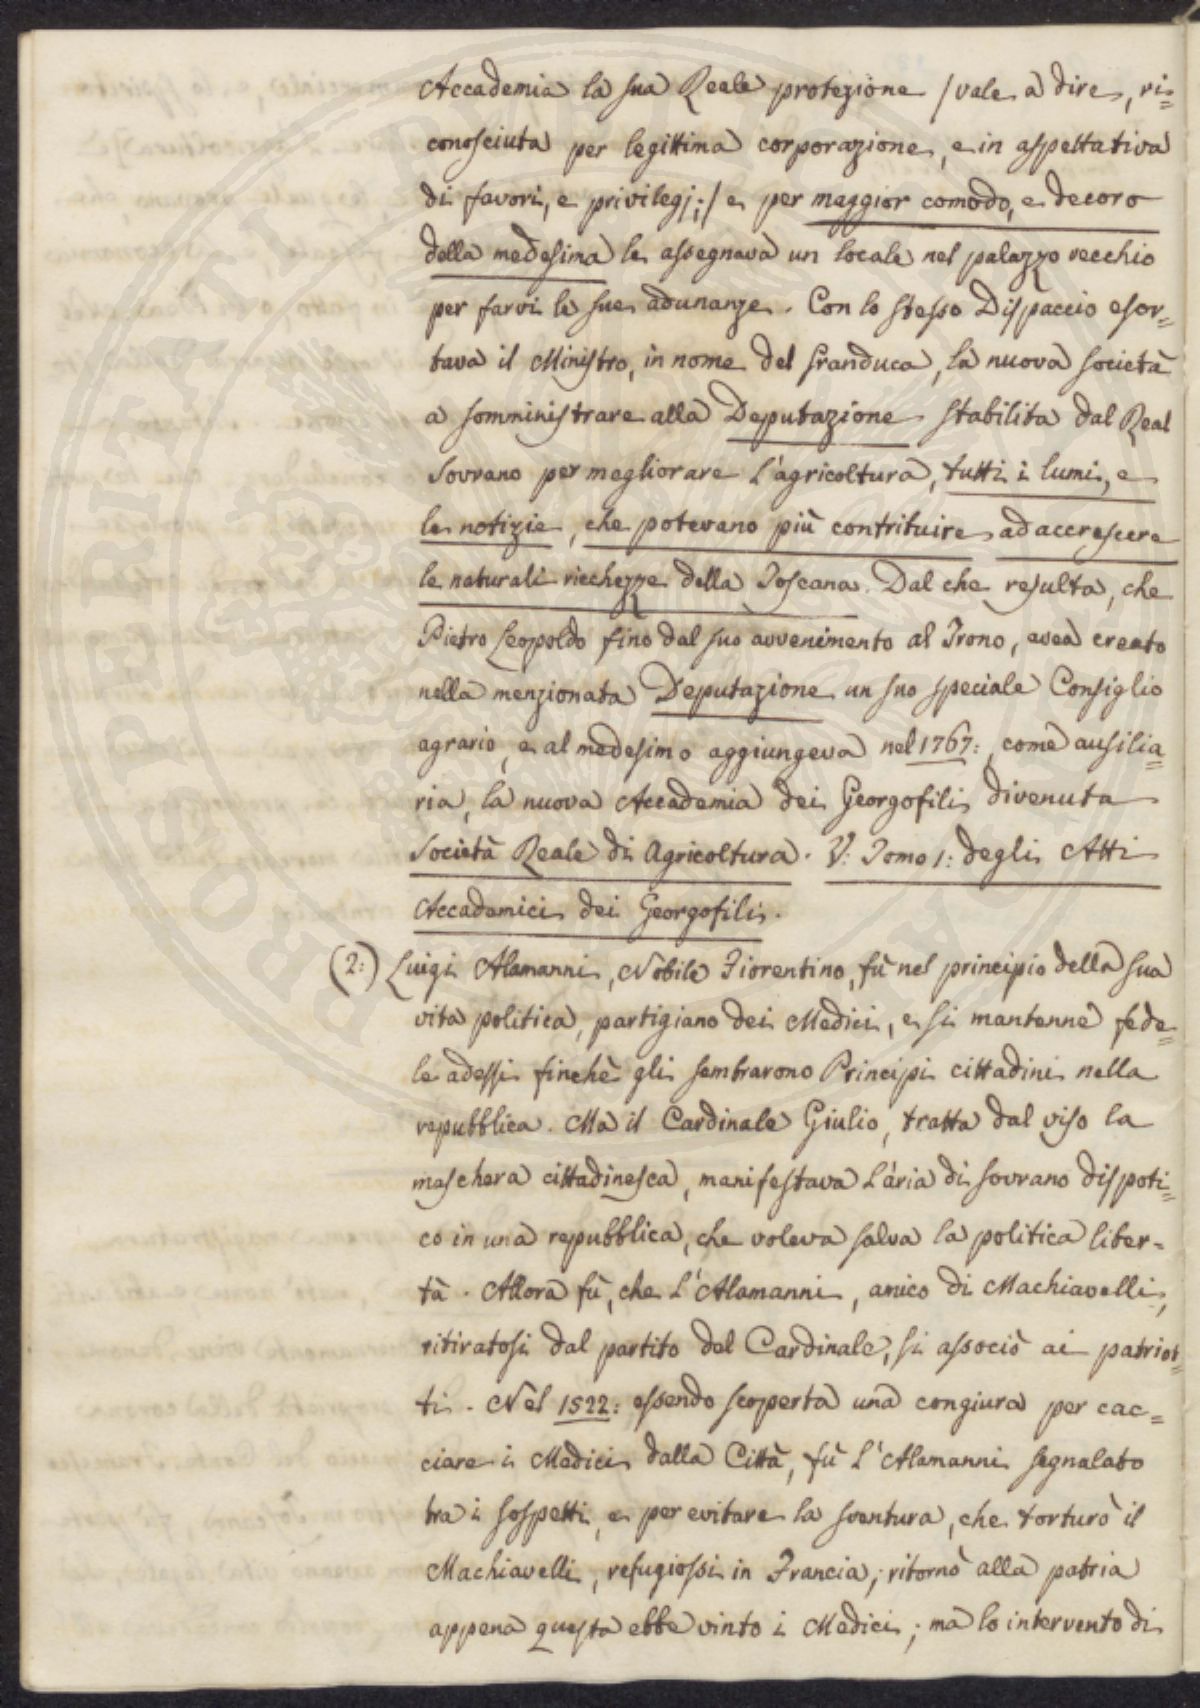 Accademia la sua Reale protezione /vale a dire, ri=
conosciuta per legittima corporazione, e in aspettativa
di favori, e privilegj;/ e per maggior comodo, e decoro
della medesima le assegnava un locale nel palazzo vecchio
per farvi le sue adunanze. Con lo stesso Dispaccio esor=
tava il Ministro, in nome del Granduca, la nuova società
a somministrare alla Deputazione stabilita dal Real
Sovrano per megliorare l'agricoltura, tutti i lumi, e
le notizie, che potevano più contribuire ad accrescere
le naturali ricchezze della Toscana. Dal che resulta, che
Pietro Leopoldo fino dal suo avvenimento al Trono, avea creato
nella menzionata Deputazione un suo speciale Consiglio
agrario, e al medesimo aggiungeva nel 1767:, come ausilia=
ria, la nuova Accademia dei Georgofili divenuta
Società Reale di Agricoltura. V: Tomo 1: degli Atti
Accademici dei Georgofili.
(2:) Luigi Alamanni, Nobile Fiorentino, fù nel principio della sua
vita politica, partigiano dei Medici, e si mantenne fede=
le adessi finchè gli sembrarono Principi cittadini nella
repubblica. Ma il Cardinale Giulio, tratta dal viso la
maschera cittadinesca, manifestava l'aria di sovrano dispoti=
co in una repubblica, che voleva salva la politica liber=
tà. Allora fù, che l'Alamanni, amico di Machiavelli,
ritiratosi dal partito del Cardinale, si associò ai patriot=
ti. Nel 1522: essendo scoperta una congiura per cac=
ciare i Medici dalla Città, fù l'Alamanni segnalato
tra i sospetti, e per evitare la sventura, che torturò il
Machiavelli, refugiossi in Francia; ritornò alla patria
appena questa ebbe vinto i Medici; ma lo intervento di
PROSPERITATI PUBLICAE